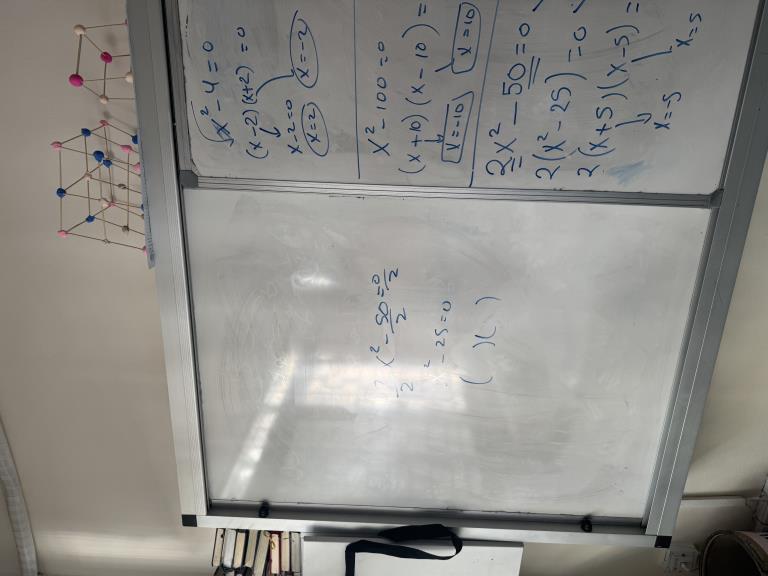 x² - 4 = 0
(x-2)(x+2) = 0
x-2=0 x=-2
x=2
x² - 100 = 0
(x+10)(x-10) =
x=-10 x=10
2x² - 50 = 0
2(x² - 25) = 0
2(x+5)(x-5) =
x=-5 x=5
x² - 50/2 = 0/2
2
² - 25 = 0
( )( )